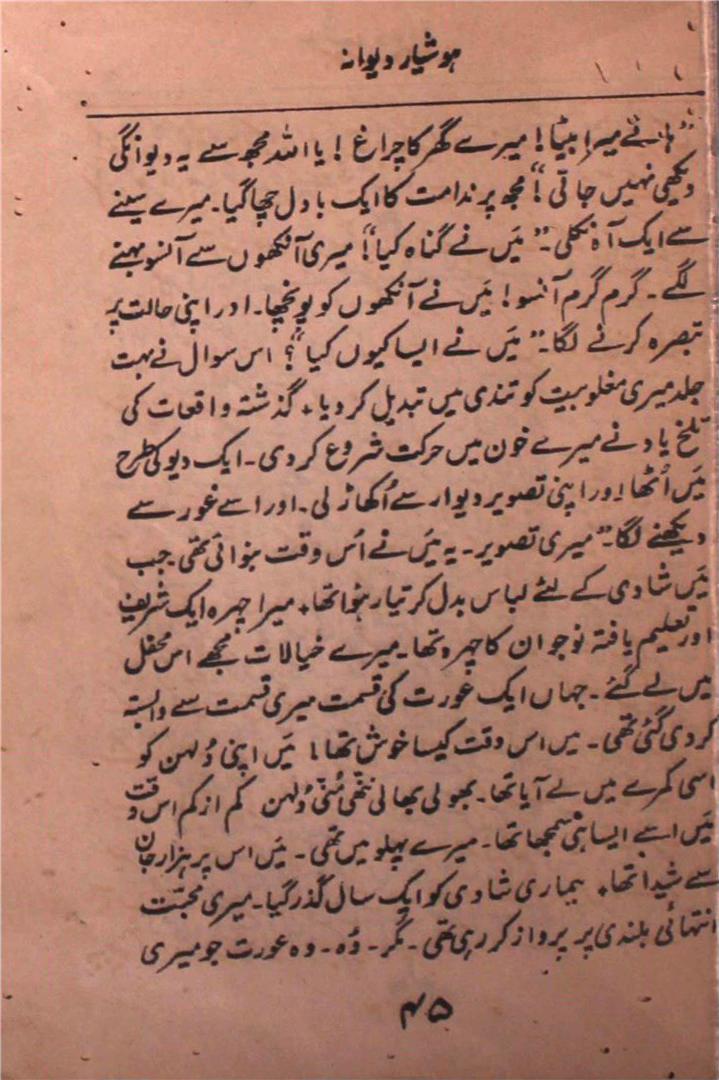 ہوشیار دیوانہ
”ہائے میرا بیٹا! میرے گھر کا چراغ! یا اللہ مجھ سے یہ دیوانگی
دیکھی نہیں جاتی!“ مجھ پر ندامت کا ایک بادل چھا گیا۔ میرے سینے
سے ایک آہ نکلی۔ ”مَیں نے گناہ کیا“! میری آنکھوں سے آنسو بہنے
لگے۔ گرم گرم آنسو! مَیں نے آنکھوں کو پونچھا۔ اور اپنی حالت پر
تبصرہ کرنے لگا۔ ”مَیں نے ایسا کیوں کیا“؟ اس سوال نے بہت
جلد میری مغلوبیت کو تندی میں تبدیل کر دیا۔ گذشتہ واقعات کی
تلخ یاد نے میرے خون میں حرکت شروع کر دی۔ ایک دیو کی طرح
مَیں اُٹھا اور اپنی تصویر دیوار سے اُکھاڑ لی۔ اور اسے غور سے
دیکھنے لگا۔ ”میری تصویر۔ یہ مَیں نے اُس وقت بنوائی تھی جب
مَیں شادی کے لئے لباس بدل کر تیار ہُوا تھا۔ میرا چہرہ ایک شریف
اور تعلیم یافتہ نوجوان کا چہرہ تھا۔ میرے خیالات مجھے اس محفل
میں لے گئے۔ جہاں ایک عورت کی قسمت میری قسمت سے وابستہ
کر دی گئی تھی۔ میں اس وقت کیسا خوش تھا! مَیں اپنی دُلہن کو
اسی کمرے میں لے آیا تھا۔ بھولی بھالی ننھی مُنّی دُلہن کم از کم اس وقت
مَیں اسے ایسا ہی سمجھا تھا۔ میرے پہلو میں تھی۔ مَیں اس پر ہزار جان
سے شیدا تھا۔ ہماری شادی کو ایک سال گذر گیا۔ میری محبّت
انتہائی بلندی پر پرواز کر رہی تھی۔ مگر۔ وُہ۔ وہ عورت جو میری
۴۵